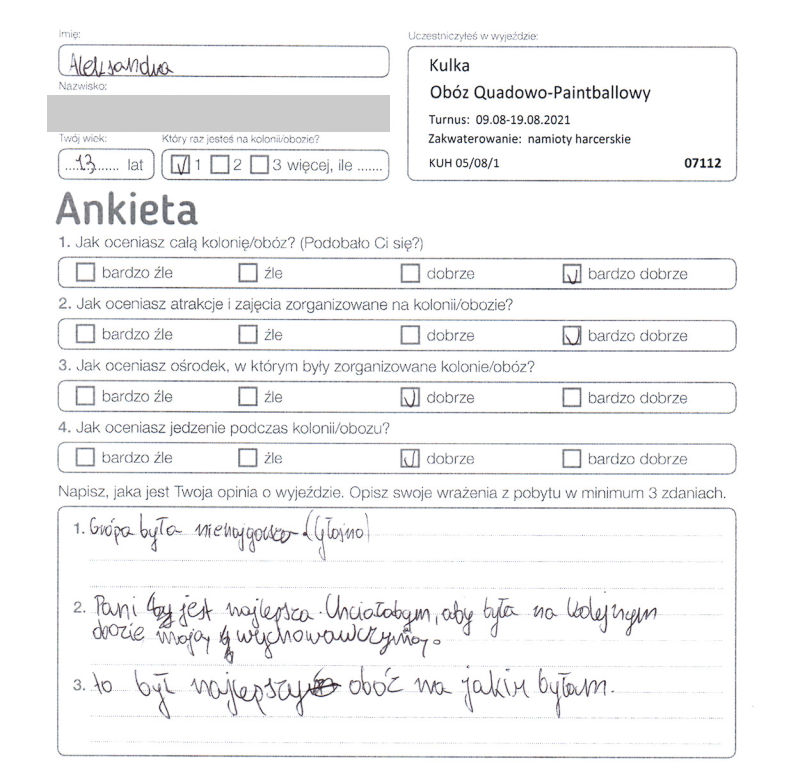 Imię:
Aleksandra
Nazwisko:
Twój wiek:
Który raz jesteś na kolonii/obozie?
....13...... lat
1 2 3 więcej, ile .......
Uczestniczyłeś w wyjeździe:
Kulka
Obóz Quadowo-Paintballowy
Turnus: 09.08-19.08.2021
Zakwaterowanie: namioty harcerskie
KUH 05/08/1 07112
Ankieta
1. Jak oceniasz całą kolonię/obóz? (Podobało Ci się?)
bardzo źle źle dobrze bardzo dobrze
2. Jak oceniasz atrakcje i zajęcia zorganizowane na kolonii/obozie?
bardzo źle źle dobrze bardzo dobrze
3. Jak oceniasz ośrodek, w którym były zorganizowane kolonie/obóz?
bardzo źle źle dobrze bardzo dobrze
4. Jak oceniasz jedzenie podczas kolonii/obozu?
bardzo źle źle dobrze bardzo dobrze
Napisz, jaka jest Twoja opinia o wyjeździe. Opisz swoje wrażenia z pobytu w minimum 3 zdaniach.
1. Grópa była nienajgorsza (Głośno)
2. Pani jest najlepsza. Chciałabym, aby była na kolejnym
obozie moją wychowawczynią.
3. to był najlepszy obóz na jakim byłam.